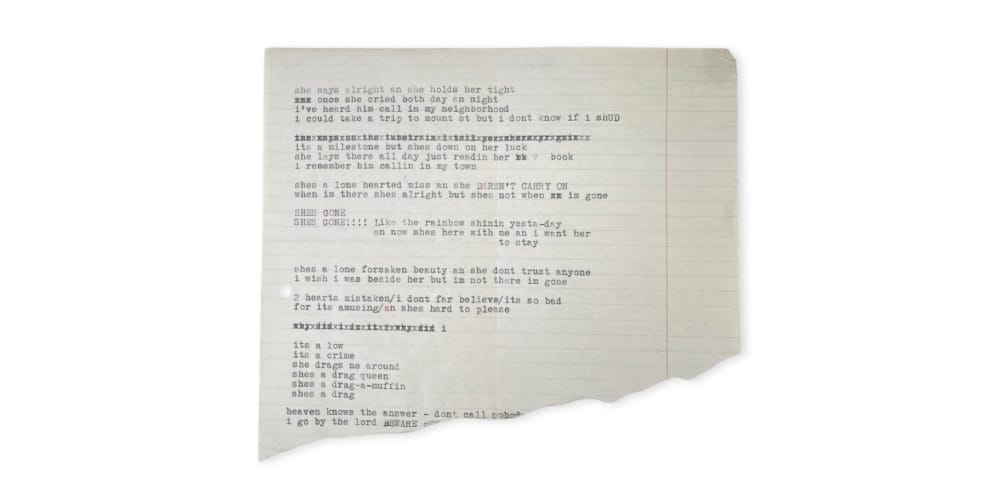 she says alright an she holds her tight
xxx once she cried both day an night
i've heard him call in my neighborhood
i could take a trip to mount st but i dont know if i shUD
its a milestone but shes down on her luck
she lays there all day just readin her book
i remember him callin in my town
shes a lone hearted miss an she DAREN'T CARRY ON
when im there shes alright but shes not when xx im gone
SHES GONE
SHES GONE!!!! Like the rainbow shinin yesta-day
an now shes here with me an i want her
to stay
shes a lone forsaken beauty an she dont trust anyone
i wish i was beside her but im not there im gone
2 hearts mistaken/i dont far believe/its so bad
for its amusing/an shes hard to please
whyxdidxixdoxitxfxwhyxdid i
its a low
its a crime
she drags me around
shes a drag queen
shes a drag-a-muffin
shes a drag
heaven knows the answer - dont call nobod
i go by the lord BEWARE